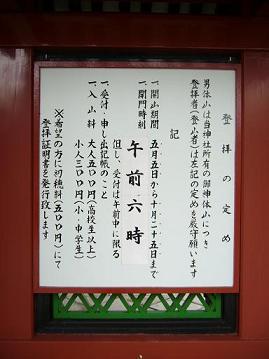 登拝の定め
男体山は当神社所有の御神体山につき
登拝者(登山者)は左記の定めを厳守願います
記
一、開山期間 五月五日から十月二十五日まで
一、開門時刻 午前六時
但し、受付は午前中に限る
一、受付・申し出記帳のこと
一、入山料 大人五〇〇円(高校生以上)
小人三〇〇円(小・中学生)
※希望の方に初穂料(五〇〇円)にて
登拝証明書を発行致します